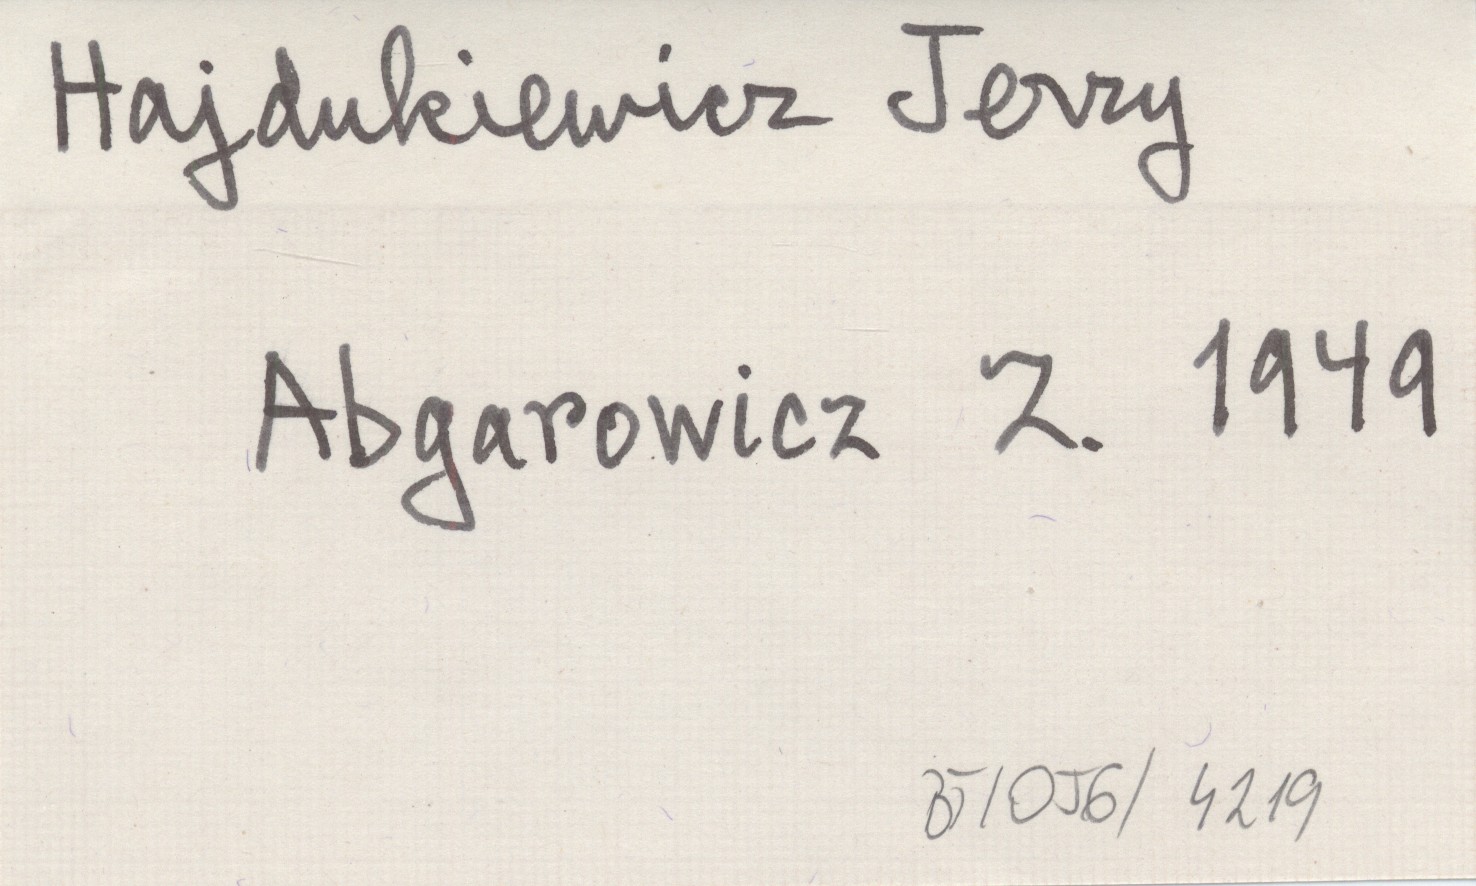 Hajdukiewicz Jerzy
Abgarowicz Z. 1949
BJ/OJG/ 4219